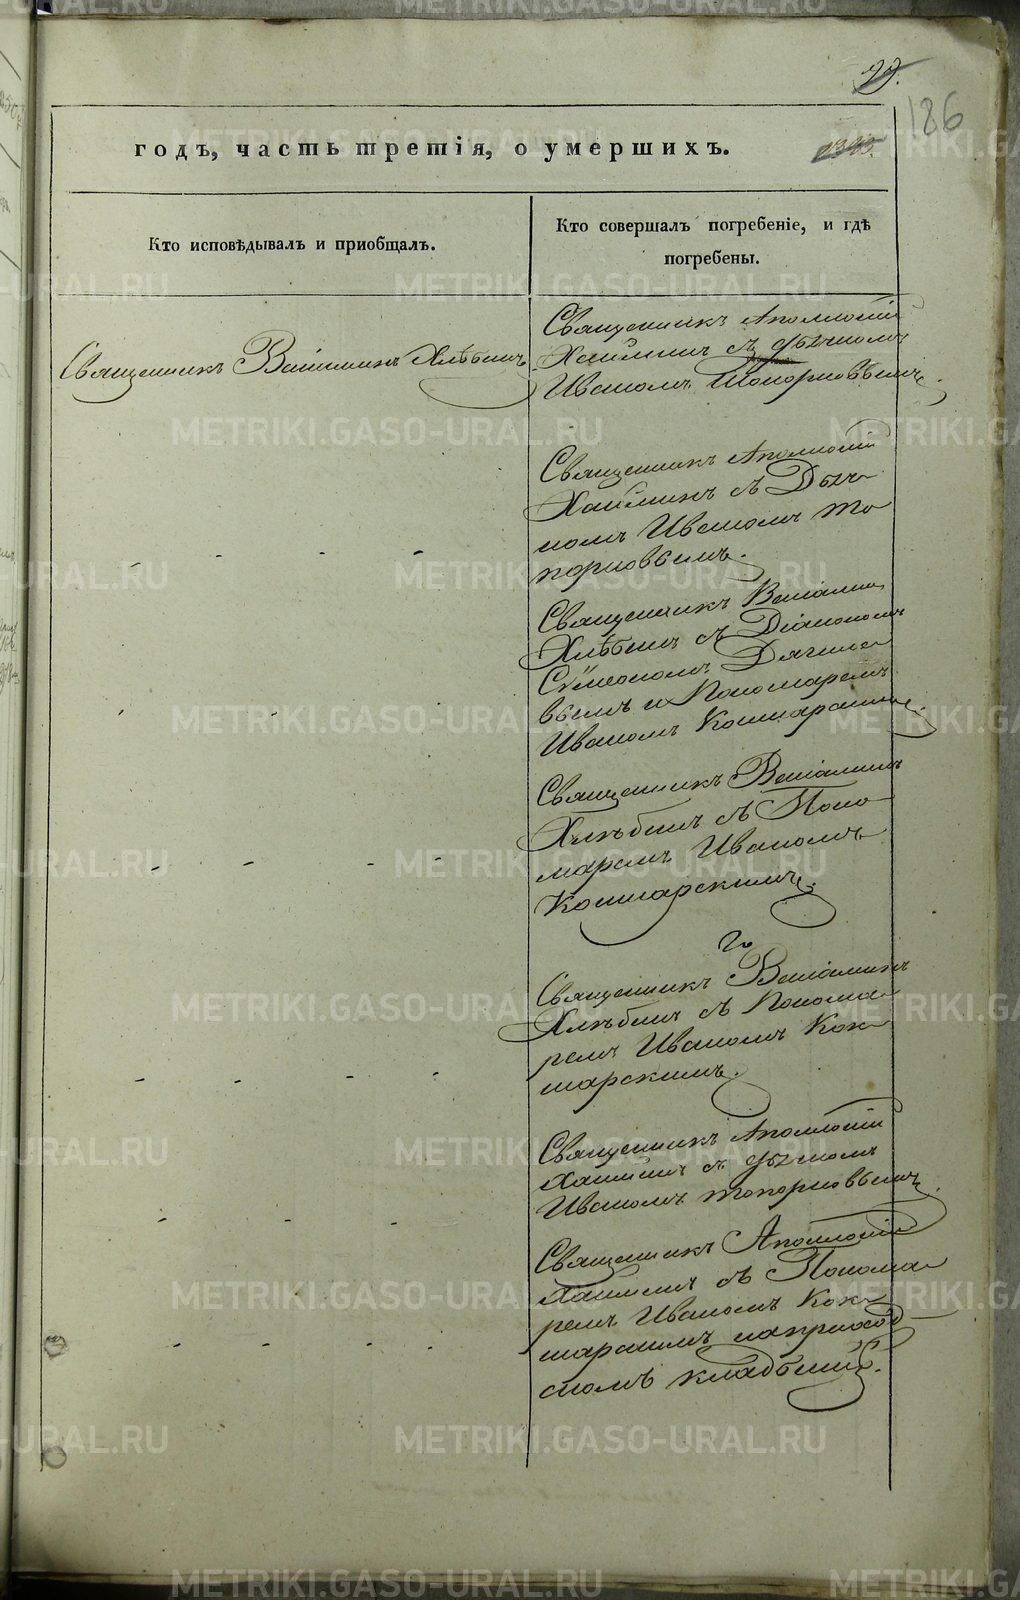 186
годъ, часть третія, о умершихъ.
Кто исповѣдывалъ и пріобщалъ.
Кто совершалъ погребеніе, и гдѣ
погребены.
Священникъ Веніаминъ Хлѣбинъ
Священникъ Аполлоній
съ дьячкомъ
Иваномъ Топорковымъ.
Священникъ Аполлоній
съ Дьяч-
комъ Иваномъ То-
порковымъ.
Священникъ Веніаминъ
Хлѣбинъ съ Діакономъ
Сѵмеономъ
вымъ и Пономаремъ
Иваномъ
Священникъ Веніаминъ
Хлѣбинъ съ Поно-
маремъ Иваномъ
Священникъ Веніаминъ
Хлѣбинъ съ Понома-
ремъ Иваномъ Кок-
шарскимъ.
Священникъ Аполлоній
съ дьячкомъ
Иваномъ Топорковымъ.
Священникъ Аполлоній
съ Понома-
ремъ Иваномъ Кок-
шарскимъ на приход-
скомъ кладбищѣ.
METRIKI.GASO-URAL.RU